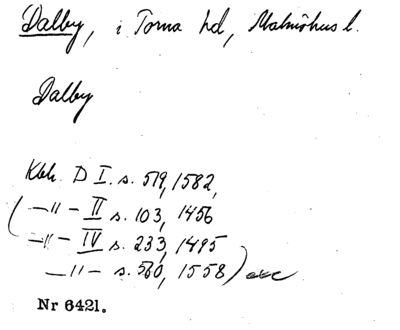 Dalby, i Torna hd, Malmöhus l.
Dalby
Kbh. D I. s. 519, 1582,
(—"— II s. 103, 1456
—"— IV s. 233, 1495
—"— s. 560, 1558)
Nr 6421.